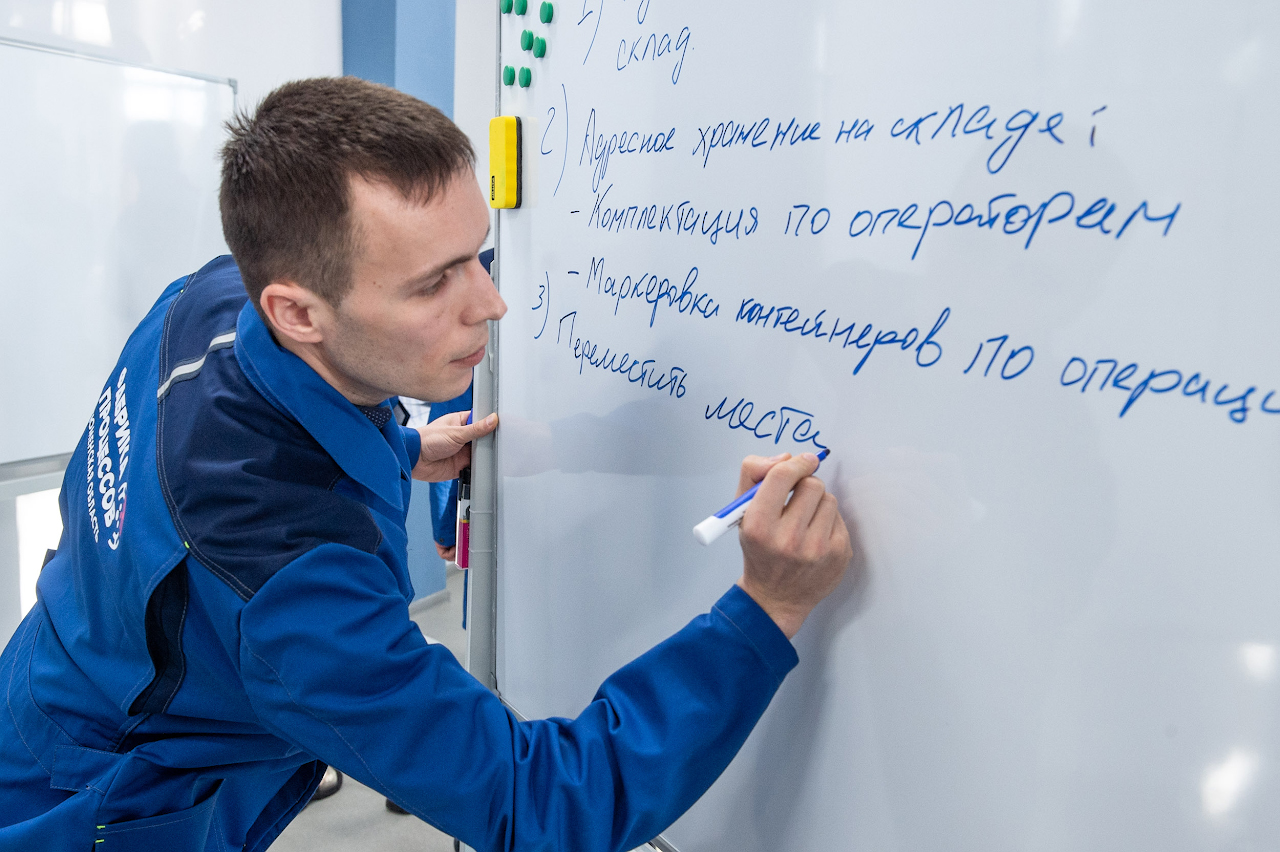 1)
склад.
2) Адресное хранение на складе;
- Комплектация по операторам
- Маркеровки контейнеров по операци
3) Переместить места
ФАБРИКА
ПРОЦЕССОВ
ТЮМЕНСКАЯ ОБЛАСТЬ